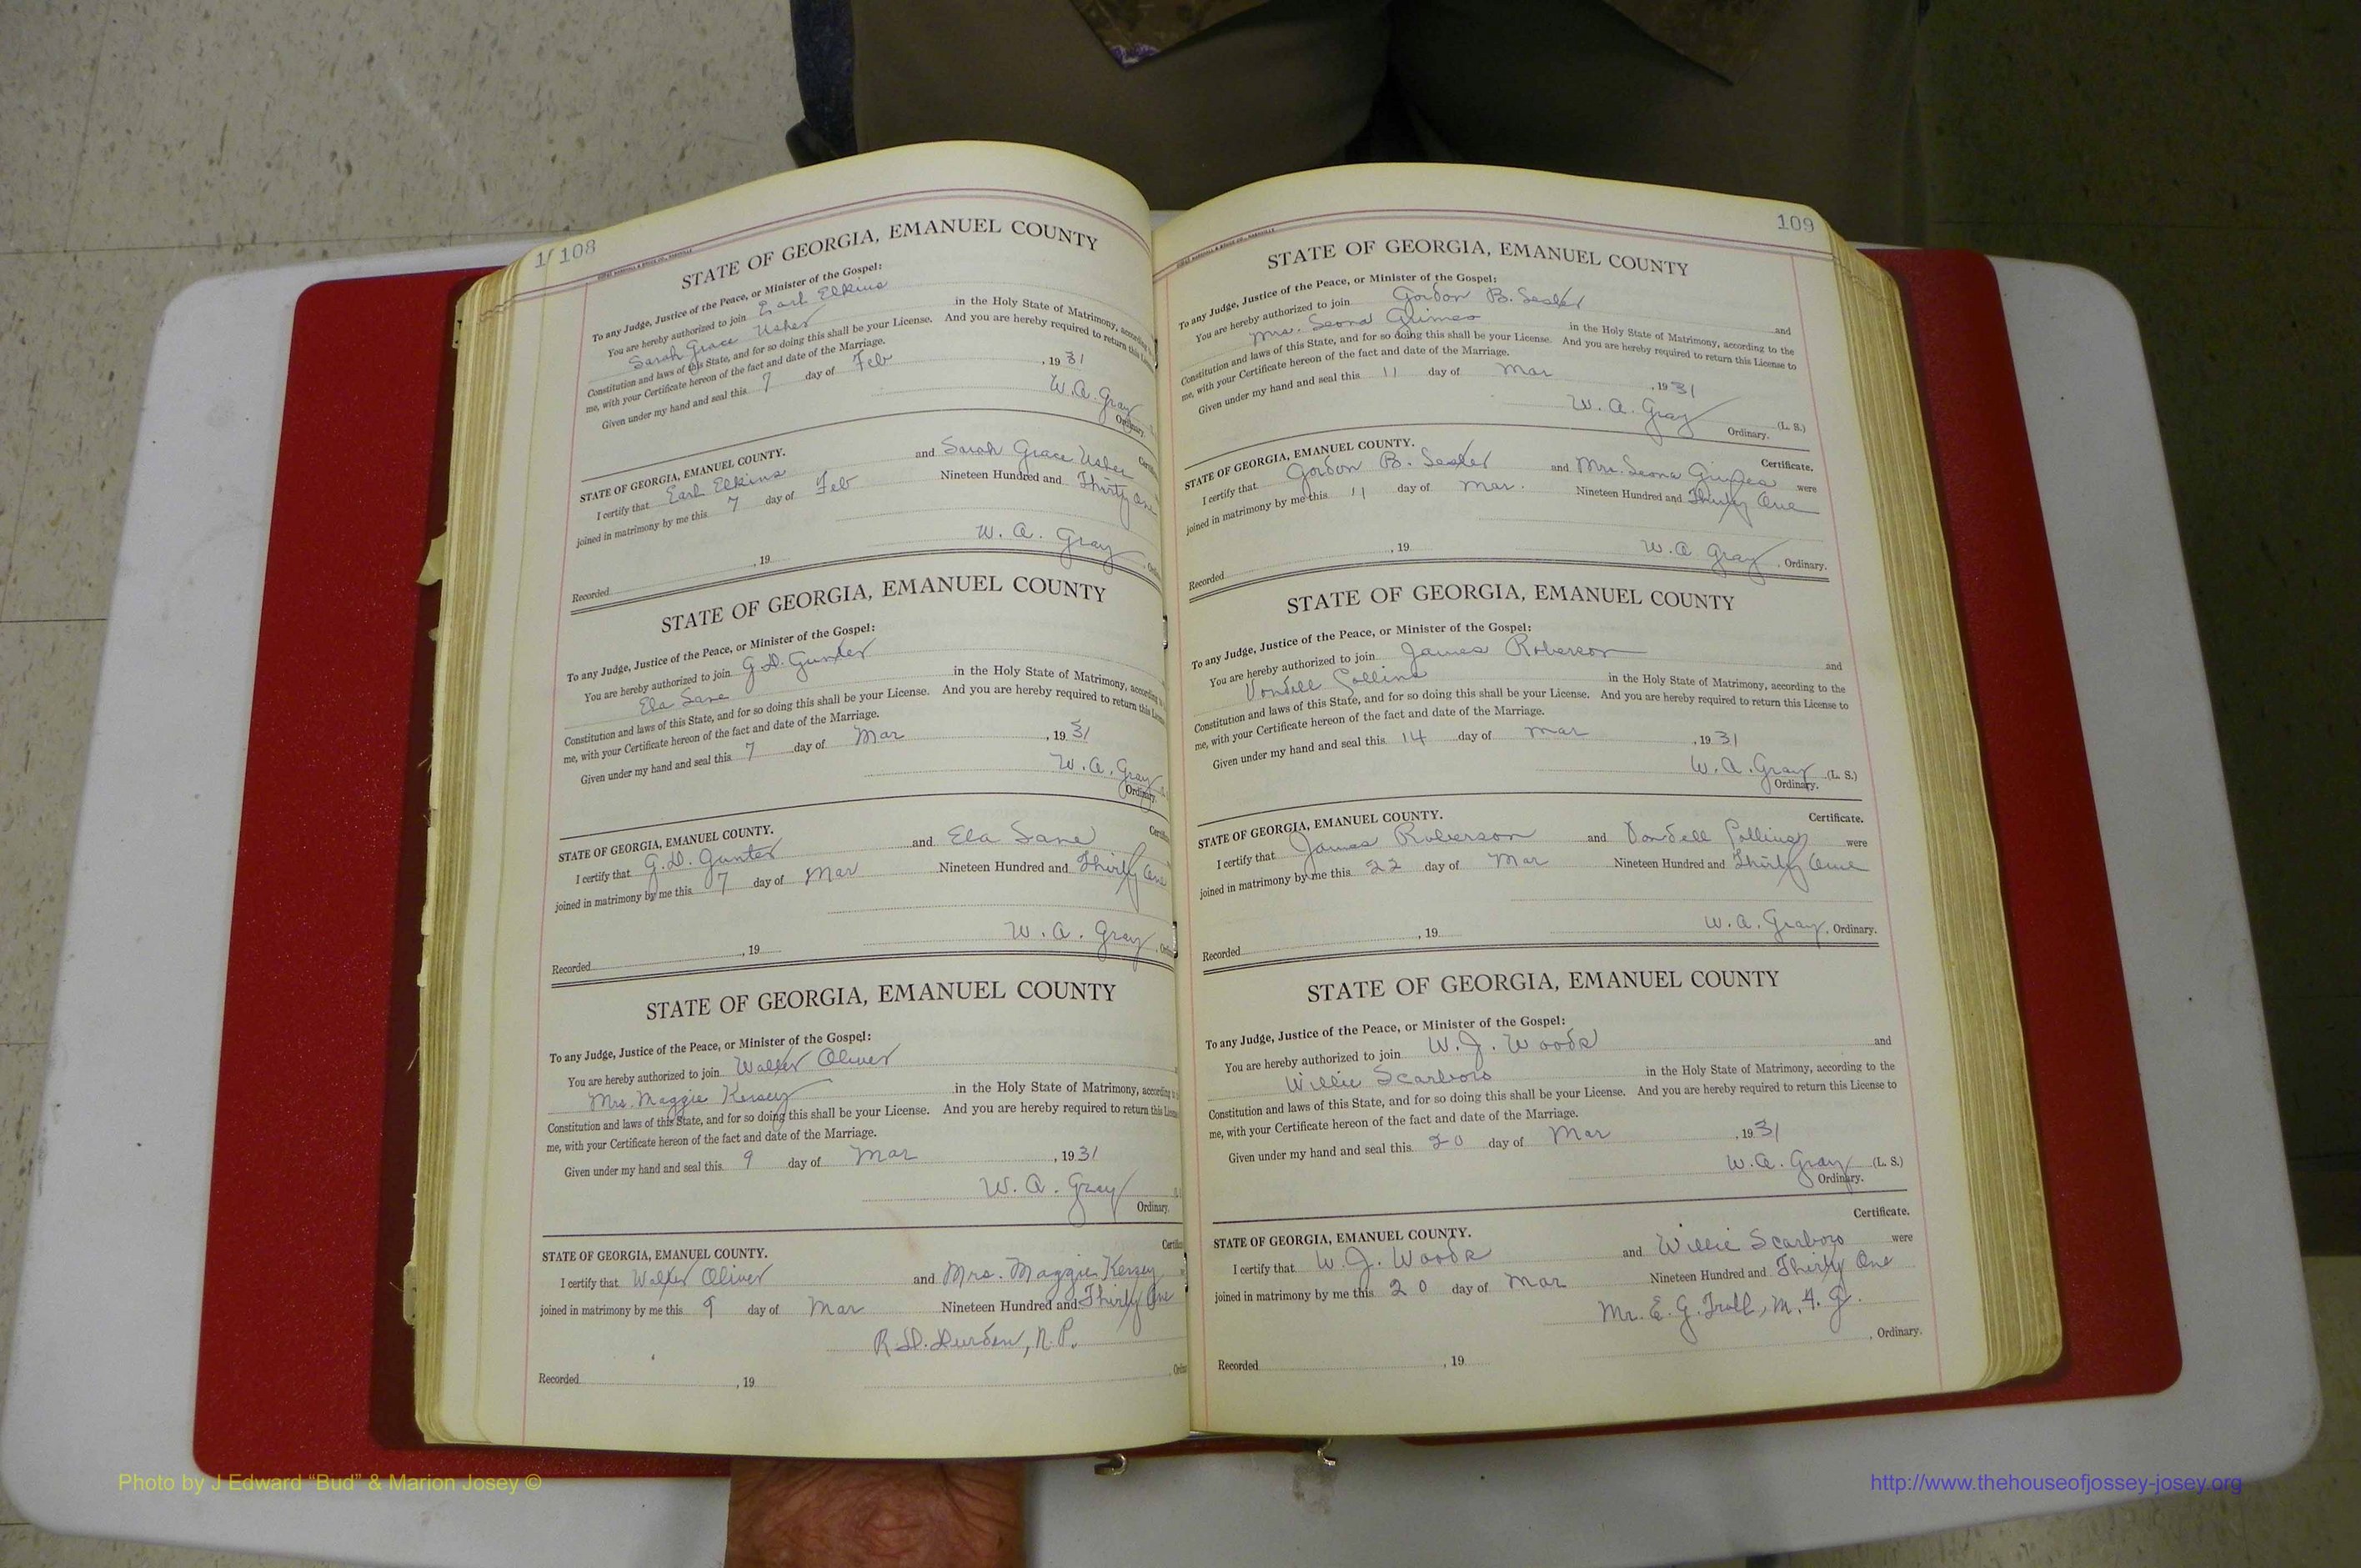 1/ 108
STATE OF GEORGIA, EMANUEL COUNTY
To any Judge, Justice of the Peace, or Minister of the Gospel:
You are hereby authorized to join Earl Elkins
Sarah Grace Usher in the Holy State of Matrimony, according
Constitution and laws of this State, and for so doing this shall be your License. And you are hereby required to return this
me, with your Certificate hereon of the fact and date of the Marriage.
Given under my hand and seal this 7 day of Feb , 1931
W. A. Gray
Ordinary.
STATE OF GEORGIA, EMANUEL COUNTY.
I certify that Earl Elkins and Sarah Grace Usher
joined in matrimony by me this 7 day of Feb Nineteen Hundred and Thirty One
W. A. Gray
Recorded , 19
STATE OF GEORGIA, EMANUEL COUNTY
To any Judge, Justice of the Peace, or Minister of the Gospel:
You are hereby authorized to join G. D. Gunter
Ela Lane in the Holy State of Matrimony, according
Constitution and laws of this State, and for so doing this shall be your License. And you are hereby required to return this
me, with your Certificate hereon of the fact and date of the Marriage.
Given under my hand and seal this 7 day of Mar , 1931
W. A. Gray
Ordinary.
STATE OF GEORGIA, EMANUEL COUNTY.
I certify that G. D. Gunter and Ela Lane
joined in matrimony by me this 7 day of Mar Nineteen Hundred and Thirty One
W. A. Gray
Recorded , 19
STATE OF GEORGIA, EMANUEL COUNTY
To any Judge, Justice of the Peace, or Minister of the Gospel:
You are hereby authorized to join Walter Oliver
Mrs. Maggie Kersey in the Holy State of Matrimony, according
Constitution and laws of this State, and for so doing this shall be your License. And you are hereby required to return this
me, with your Certificate hereon of the fact and date of the Marriage.
Given under my hand and seal this 9 day of Mar , 1931
W. A. Gray
Ordinary.
STATE OF GEORGIA, EMANUEL COUNTY.
I certify that Walter Oliver and Mrs. Maggie Kersey
joined in matrimony by me this 9 day of Mar Nineteen Hundred and Thirty One
R. D. Durden, N. P.
Recorded , 19
109
STATE OF GEORGIA, EMANUEL COUNTY
To any Judge, Justice of the Peace, or Minister of the Gospel:
You are hereby authorized to join Gordon B. and
Mrs. Seona Grimes in the Holy State of Matrimony, according to the
Constitution and laws of this State, and for so doing this shall be your License. And you are hereby required to return this License to
me, with your Certificate hereon of the fact and date of the Marriage.
Given under my hand and seal this 11 day of Mar , 1931
W. A. Gray (L. S.)
Ordinary.
STATE OF GEORGIA, EMANUEL COUNTY. Certificate.
I certify that Gordon B. and Mrs. Seona Grimes were
joined in matrimony by me this 11 day of Mar. Nineteen Hundred and Thirty One
W. A. Gray , Ordinary.
Recorded , 19
STATE OF GEORGIA, EMANUEL COUNTY
To any Judge, Justice of the Peace, or Minister of the Gospel:
You are hereby authorized to join James Roberson and
Vondell Collins in the Holy State of Matrimony, according to the
Constitution and laws of this State, and for so doing this shall be your License. And you are hereby required to return this License to
me, with your Certificate hereon of the fact and date of the Marriage.
Given under my hand and seal this 14 day of Mar , 1931
W. A. Gray (L. S.)
Ordinary.
STATE OF GEORGIA, EMANUEL COUNTY. Certificate.
I certify that James Roberson and Vondell Collins were
joined in matrimony by me this 22 day of Mar Nineteen Hundred and Thirty One
W. A. Gray , Ordinary.
Recorded , 19
STATE OF GEORGIA, EMANUEL COUNTY
To any Judge, Justice of the Peace, or Minister of the Gospel:
You are hereby authorized to join W. J. Woods and
Willie Scarboro in the Holy State of Matrimony, according to the
Constitution and laws of this State, and for so doing this shall be your License. And you are hereby required to return this License to
me, with your Certificate hereon of the fact and date of the Marriage.
Given under my hand and seal this 20 day of Mar , 1931
W. A. Gray (L. S.)
Ordinary.
STATE OF GEORGIA, EMANUEL COUNTY. Certificate.
I certify that W. J. Woods and Willie Scarboro were
joined in matrimony by me this 20 day of Mar Nineteen Hundred and Thirty One
Mr. E. G. M. G.
, Ordinary.
Recorded , 19
Photo by J Edward “Bud” & Marion Josey ©
http://www.thehouseofjossey-josey.org